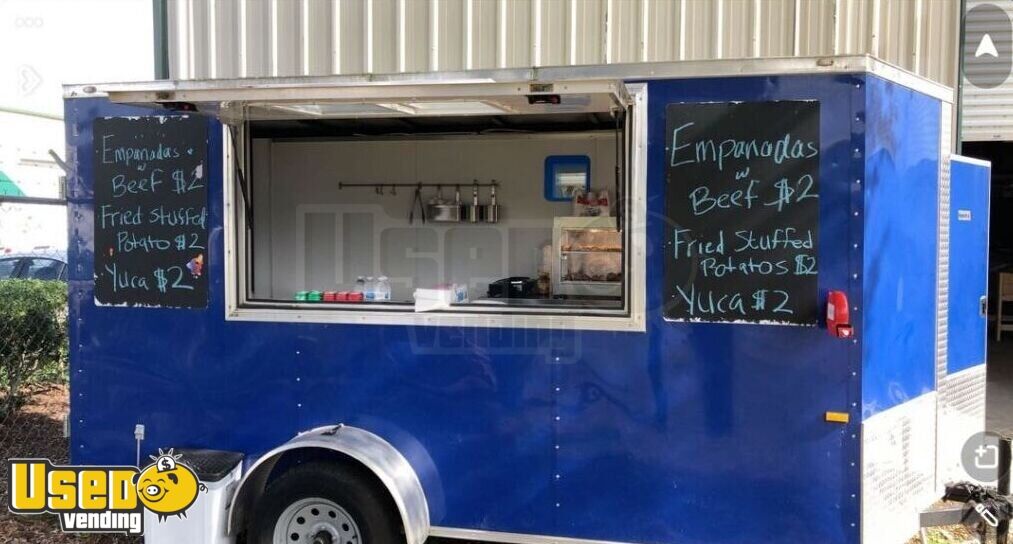 Empanadas
Beef $2
Fried Stuffed
Potato $2
Yuca $2
Empanadas
w
Beef $2
Fried Stuffed
Potatos $2
Yuca $2
Used
vending
Used
vending